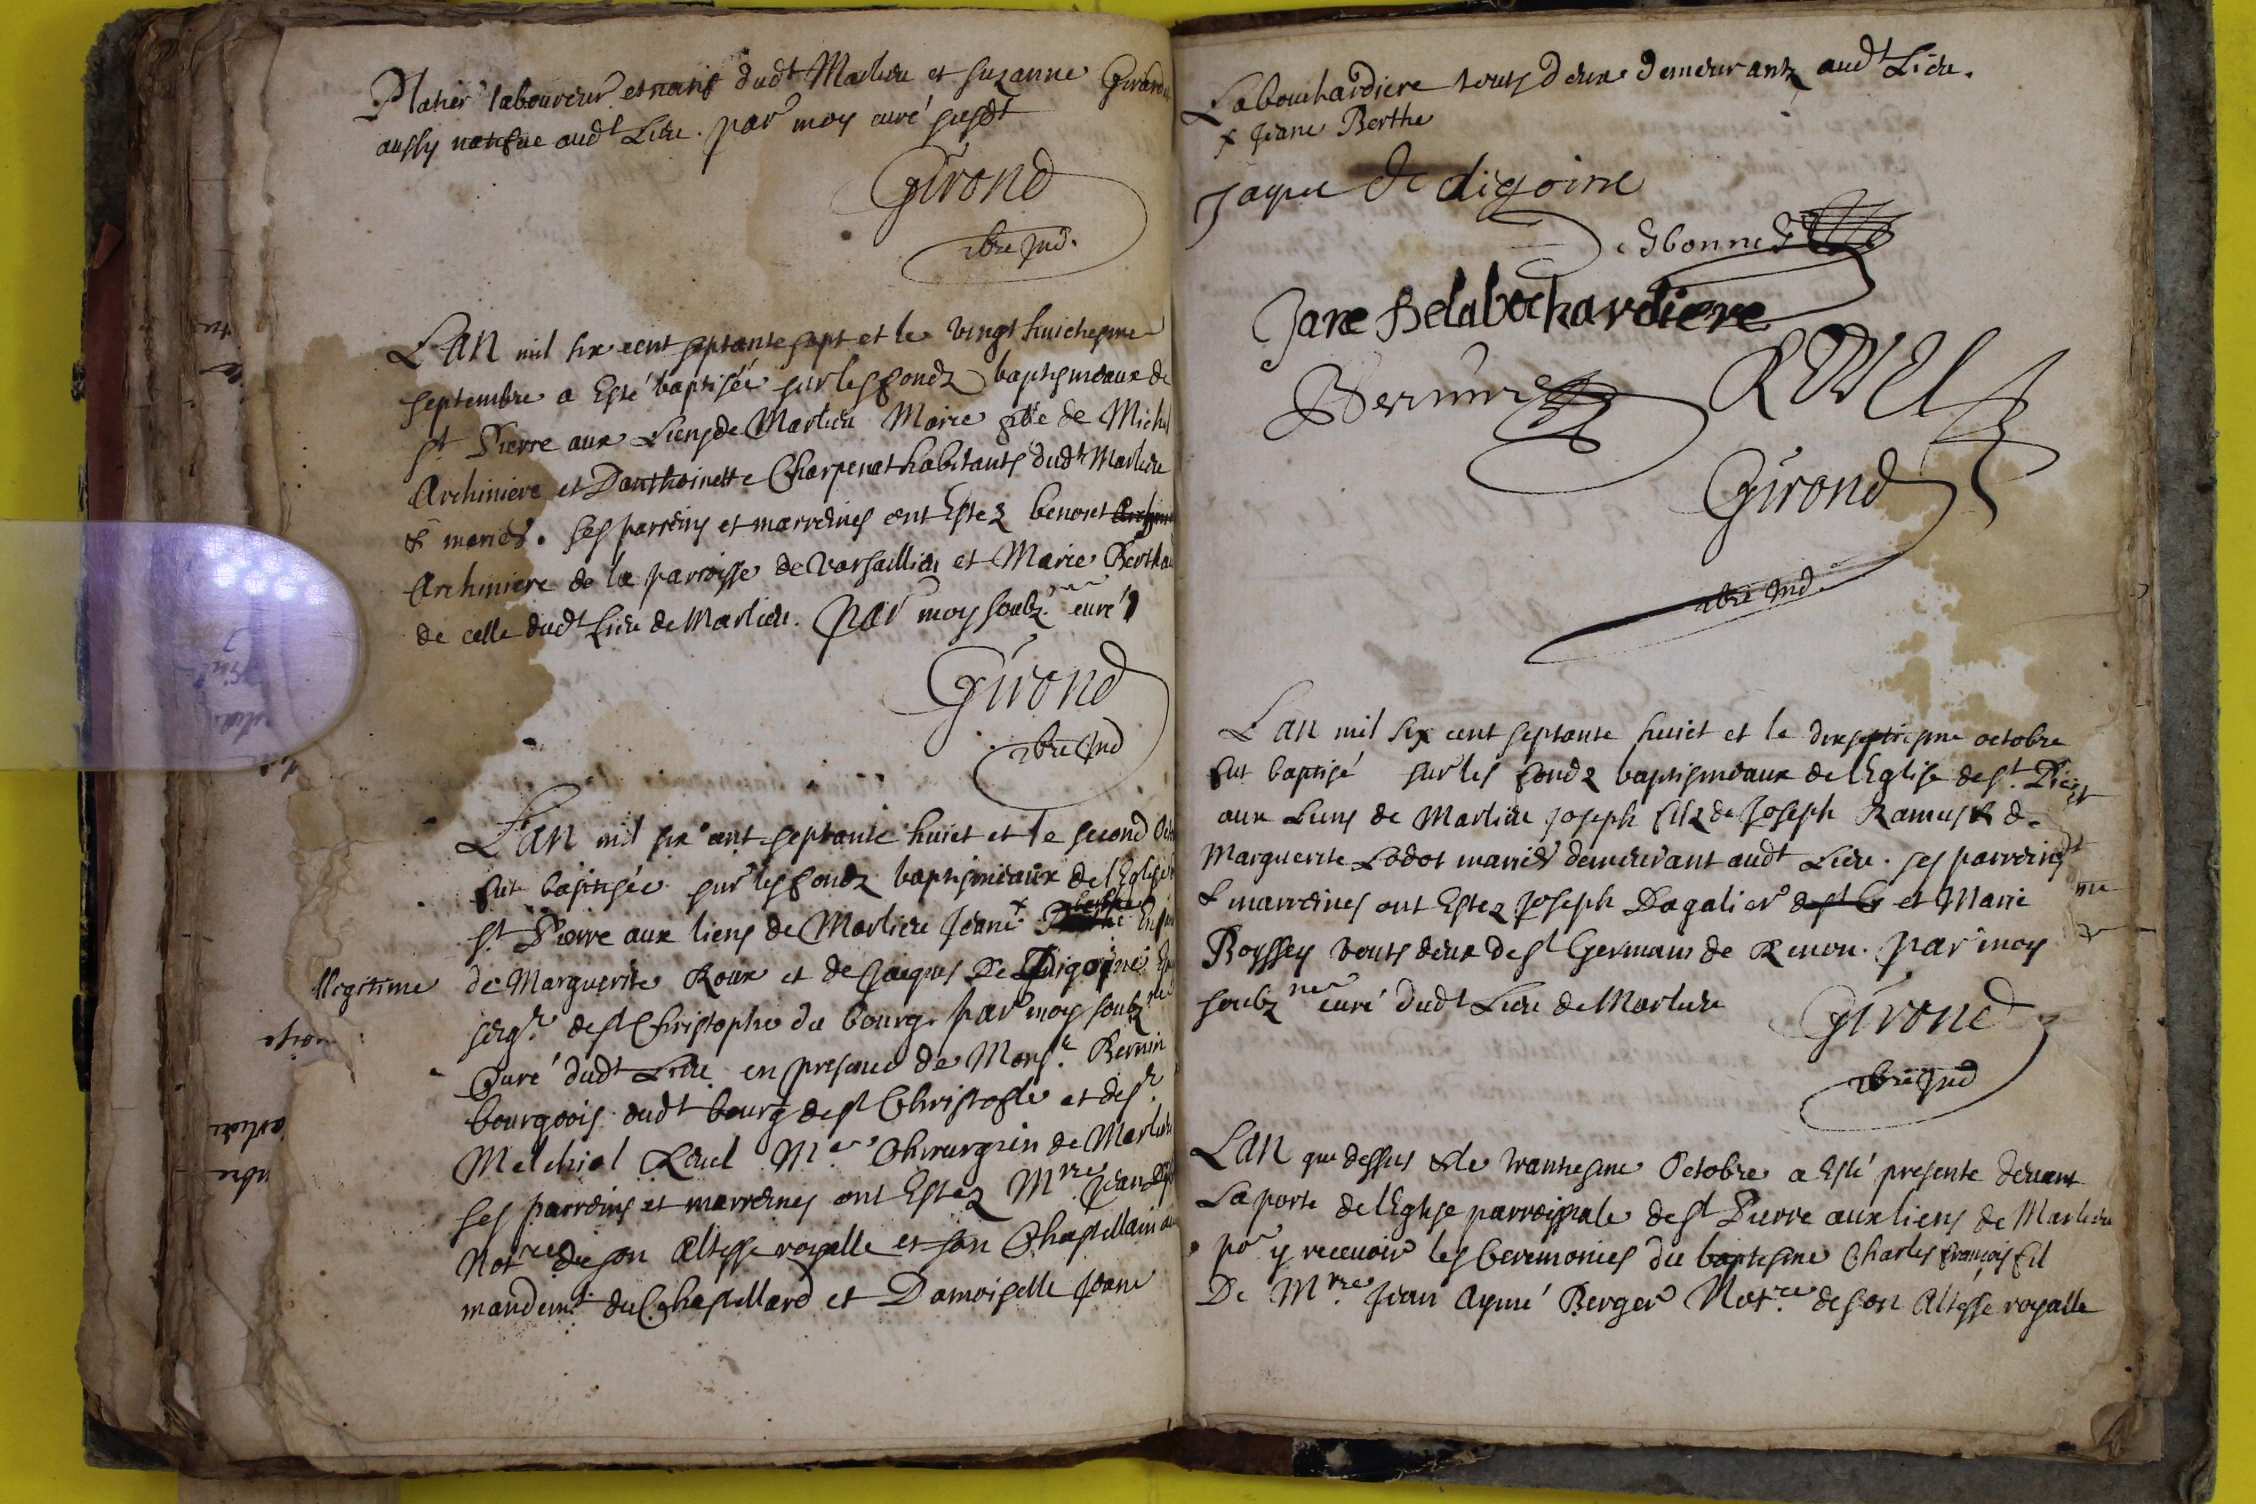 Platier laboureur et natif dudt Marlieu et Suzanne Girard
aussy audt Lieu. par moy curé susdt
Girond
L'An mil six cent septante sept et le vingt huichesme
septembre a esté baptisée sur les fondz baptismeaux de
St Pierre aux Liens de Marlieu Marie fille de Michel
Archiniere et Danthoinette Charpenat habitants dudt Marlieu
& mariés. ses parreins et marreines ont estez benoict
Archiniere de la parroisse de Versaillieu et Marie Berthe
de celle dudt Lieu de Marlieu. Par moy soubzne curé
Girond
L'An mil six cent septante huict et le second
fut baptisée sur les fondz baptismeaux de l'Eglise
St Pierre aux liens de Marlieu Jeane x
illegitime de Marguerite Roux et de Jacques De Digoine
seigr de St Christophe du bourg. Par moy soubzne
Curé dudt Lieu en presence de Monsr Bernin
bourgeois dudt bourg de St Christofle et de Sr
Melchiol Revel Me Chirurgien de Marlieu
ses parreins et marreines ont estez Mrre Jean
Notre de son Altesse royalle et son Chastellain au
mandemt du Chastellard et Damoiselle Jeane
Labouchardiere touts deux demeurantz audt Lieu.
x Jeane Berthe
Jaque de digoine
Jane Delabochardiere
Bernin
Revel
Girond
L'An mil six cent septante huict et le dixseptiesme octobre
fut baptisé sur les fondz baptismeaux de l'Eglise de St. Pierre
aux Liens de Marlieu Joseph filz de Joseph Ramus & de
Marguerite Lodot mariés demeurant audt Lieu. ses parreins
& marreines ont estez Joseph Dagalier et Marie
Boyssey touts deux de St Germain de Renon. Par moy
soubzne curé dudt Lieu de Marlieu
Girond
L'An que dessus & le trantiesme Octobre a esté presenté devant
La porte de l'Eglise parroissiale de St Pierre aux liens de Marlieu
por y recevoir les Ceremonies du baptesme Charles françois fil
De Mrre Jean Aymé Berger Notre de son Altesse royalle